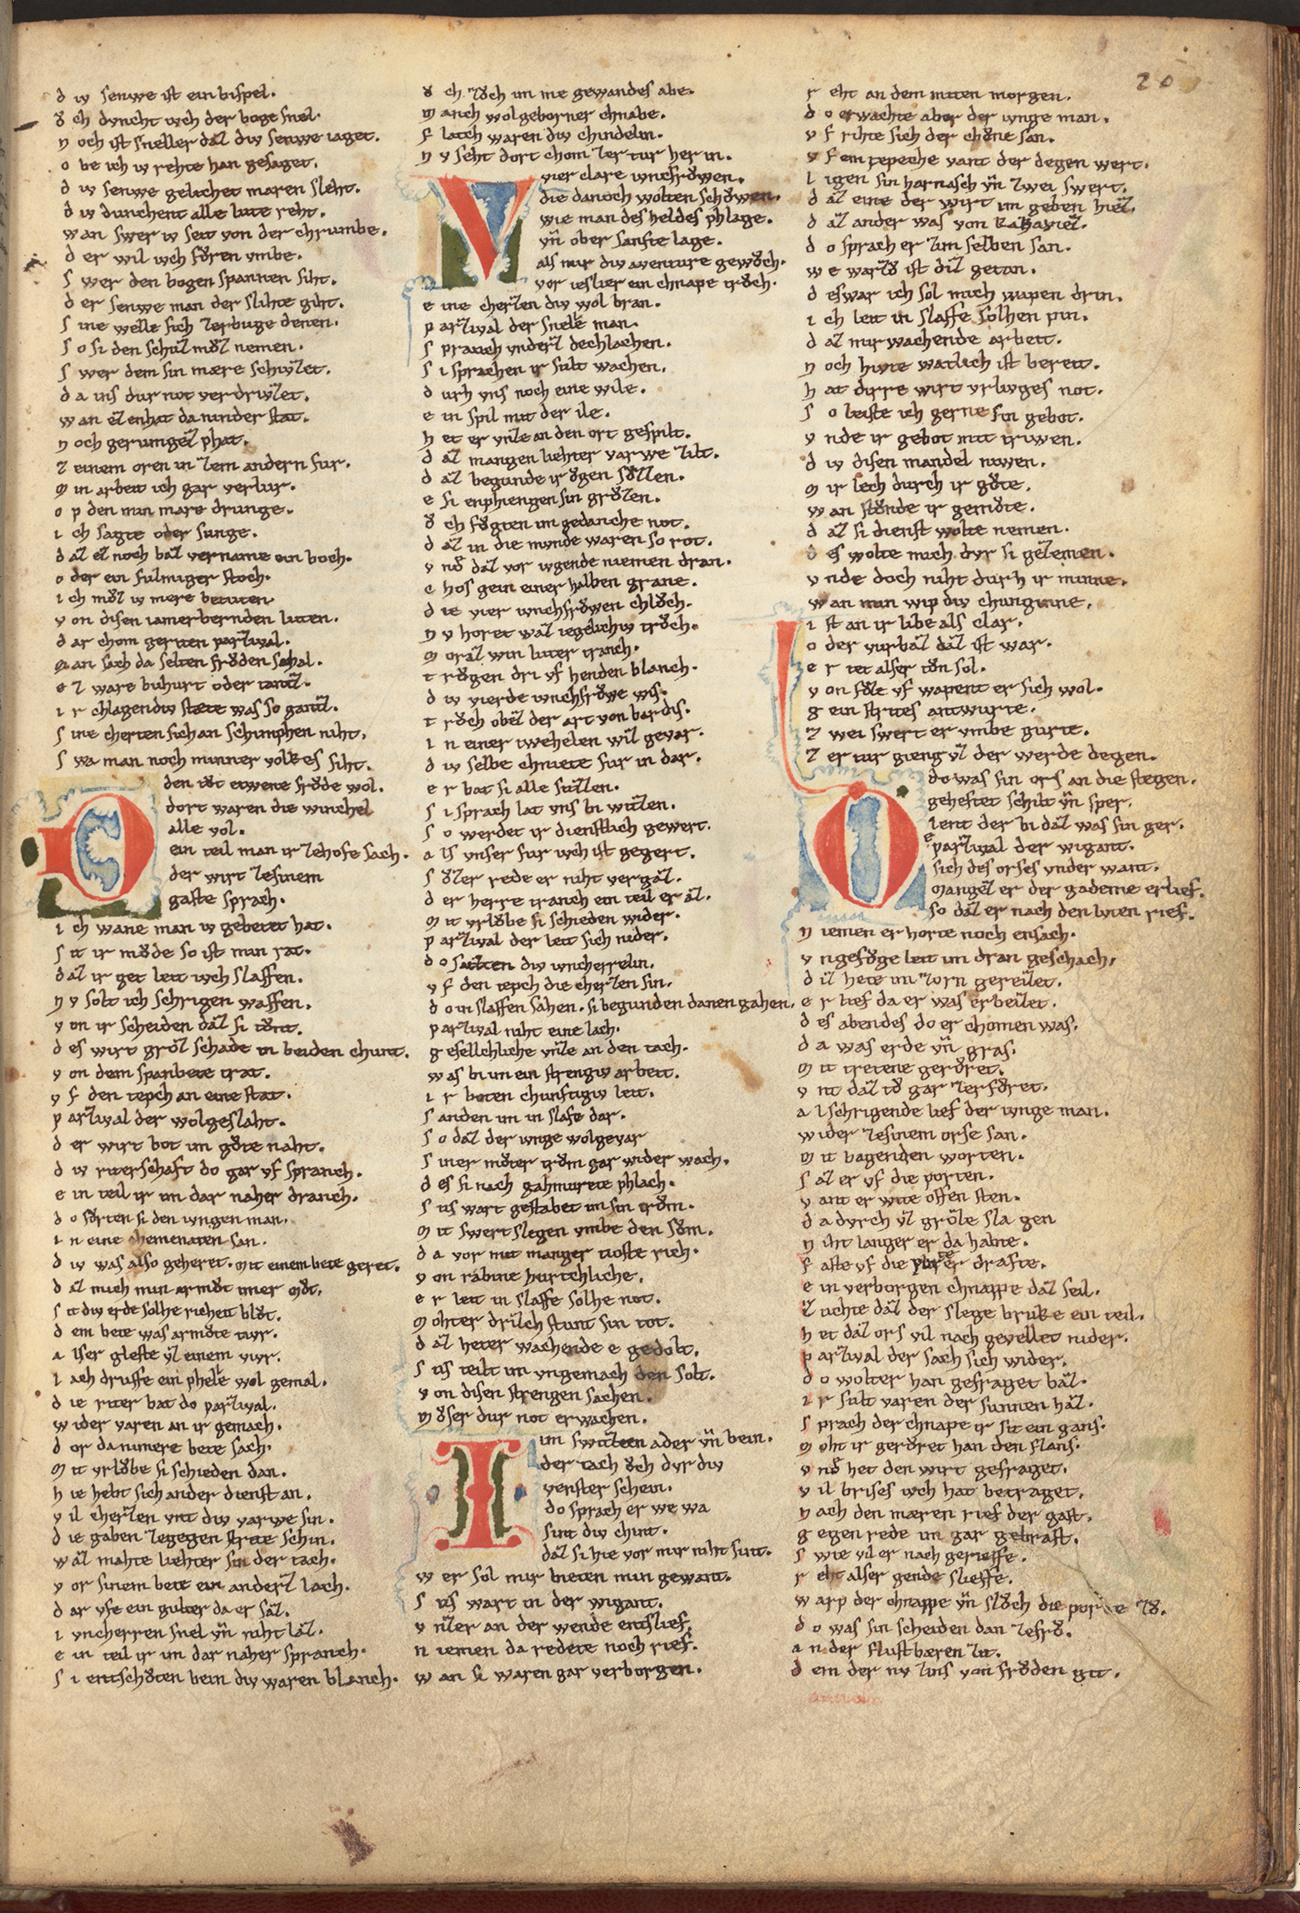 20
d iv senwe ist ein bispel.
ŏ ch dvncht ivch der boge snel.
n och ist sneller daz div senwe iaget.
o be ich iv rehte han gesaget.
d iv senwe gelichet maren sleht.
d iv dunchent alle lute reht.
w an swer iv seit von der chrumbe.
d er wil ivch fŏren vmbe.
s wer den bogen spannen siht.
d er senwe man der slihte giht.
s ine welle sich zerbuge denen.
s o si den schuz mŏz nemen.
s wer dem sin mære schivzet.
d a ins dur not verdrivzet.
w an ez enhat da ninder stat.
n och gerumgez phat.
z einem oren in zem andern fur.
m in arbeit ich gar verlur.
o p den min mare drunge.
i ch sagte oder sunge.
d az ez noch baz vername ein boch.
o der ein fulmiger stoch.
i ch mŏz iv mere betuten
v on disen iamerbernden luten.
d ar chom geriten parzival.
m an sach da selten frŏden schal.
e z ware buhurt oder tantz.
i r chlagendiv stæte was so gantz.
s ine cherten sich an schimphen niht.
s wa man noch minner volkes siht.
den tŏt etwene frŏde wol.
dort waren die winchel
alle vol.
ein teil man ir zehofe sach.
der wirt zesinem
gaste sprach.
i ch wane man iv gebetet hat.
s it ir mŏde so ist min rat.
d az ir get leit ivch slaffen.
n v solt ich schrigen waffen.
v on ir scheiden daz si tŏnt.
d es wirt groz schade in beiden chunt.
v on dem spanbete trat.
v f den tepch an eine stat.
p arzival der wolgeslaht.
d er wirt bot im gŏte naht.
d iv riterschaft do gar vf spranch.
e in teil ir im dar naher dranch.
d o fŏrten si den ivngen man.
i n eine chemenaten san.
d iv was also geheret. mit einem bete geret.
d az mich min armŏt imer mŏt.
s it div erde solhe richeit blŏt.
d em bete was armŏte tivr.
a lser gleste vz einem vivr.
l ach druffe ein phelle wol gemal.
d ie riter bat do parzival.
w ider varen an ir gemach.
d or da nimere bete sach.
m it vrlŏbe si schieden dan.
h ie hebt sich ander dienst an.
v il cherzen vnt div varwe sin.
d ie gaben zegegen strite schin.
w az mahte liehter sin der tach.
v or sinem bett ein anderz lach.
d ar vfe ein gulter da er saz.
i vncherren snel vn niht laz.
e in teil ir im dar naher spranch.
s i entschŏten bein div waren blanch.
ŏ ch zŏch im me gewandes abe.
m anch wolgeborner chnabe.
f latich waren div chindelin.
n v seht dort chom zer tur her in.
vier clare ivncfrŏwen.
die danoch wolten schŏwen.
wie man des heldes phlage.
vn ober sanfte lage.
als mir div aventure gewŏch.
vor ieslier ein chnape trŏch.
e ine cherzen div wol bran.
p arzival der snelle man.
s pranch vnderz dechlachen.
s i sprachen ir sult wachen.
d urh vns noch eine wile.
e in spil mit der ile.
h et er vnze an den ort gespilt.
d az mangen liehter varwe zilt.
d az begunde ir ŏgen sŏzen.
e si enphiengen sin grŏzen.
ŏ ch fŏgten im gedanche not.
d az in die mvnde waren so rot.
v nd daz vor ivgende niemen dran.
c hos gein einer halben grane.
d ie vier ivnchfrŏwen chlŏch.
n v horet waz iegelichiv trŏch.
m oraz win luter tranch.
t rŏgen dri vf henden blanch.
d iv vierde ivnchfrŏwe wis.
t rŏch obez der art von bardis.
i n einer twehelen wiz gevar.
d iv selbe chniete fur in dar.
e r bat si alle sitzen.
s i sprach lat vns bi witzen.
s o werdet ir dienstlich gewert.
a ls vnser fur ivch ist gegert.
s ŏzer rede er niht vergaz.
d er herre tranch ein teil er az.
m it vrlŏbe si schieden wider.
p arzival der leit sich nider.
d o satzten div ivncherrelin.
v f den tepch die cherzen sin.
d o in slaffen sahen. si begunden danen gahen.
p arzival niht eine lach.
g esellchliche vnze an den tach.
w as bi im ein strengiv arbeit.
i r boten chunftigiv leit.
s anden im in slafe dar.
s o daz der ivnge wolgevar
s iner mŏter trŏm gar wider wach.
d es si nach gahmurete phlach.
s us wart gestabet im sin trŏm.
m it swert slegen vmbe den sŏm.
d a vor mit manger tioste rich.
v on rabine hurtchliche.
e r leit in slaffe solhe not.
m ohter drizch stunt sin tot.
d az heter wachende e gedolt.
s us teilt im vngemach den solt.
v on disen strengen sachen.
m ŏser dur not erwachen.
im switzen ader vn bein.
der tach ŏch dvr div
venster schein.
do sprach er we wa
sint div chint.
daz si hie vor mir niht sint.
w er sol mir bieten min gewant.
s us wart in der wigant.
v nzer an der wende entslief.
n iemen da redete noch rief.
w an si waren gar verborgen.
r eht an dem mitten morgen.
d o erwachte aber der ivnge man.
v f rihte sich der chŏne san.
v f em tepeche vant der degen wert.
l igen sin harnasch vn zwei swert.
d az eine der wirt im geben hiez.
d az ander was von kahaviez.
d o sprach er zim selben san.
w e warzŏ ist diz getan.
d eswar ich sol mich wapen drin.
i ch leit in slaffe solhen pin.
d az mir wachende arbeit.
n och hivte watlich ist bereit.
h at dirre wirt vrlivges not.
s o leiste ich gerne sin gebot.
v nde ir gebot mit triwen.
d iv disen mandel niwen.
m ir lech durch ir gŏte.
w an stŏnde ir gemŏte.
d az si dienst wolte nemen.
d es wolte mich dvr si gezemen.
v nde doch niht durh ir minne.
w an min wip div chunginne.
i st an ir libe als clar.
o der vurbaz daz ist war.
e r tet alser tŏn sol.
v on fŏze vf wapent er sich wol.
g ein strites antwurte.
z wei swert er vmbe gurte.
z er tur gieng vz der werde degen.
do was sin ors an die stegen.
geheftet schilt vn sper.
lent der bi daz was sin ger.
e parzival der wigant.
sich des orses vnder want.
mangez er der gademe erlief.
so daz er nach den luten rief.
n iemen er horte noch ensach.
v ngefŏge leit im dran geschach.
d iz hete im zorn gereizet.
e r lief da er was erbeizet.
d es abendes do er chomen was.
d a was erde vn gras.
m it tretene gerŏret.
v nt daz tŏ gar zerfŏret.
a l schrigende lief der ivnge man.
w ider zesinem orse san.
m it bagenden worten.
s az er vf die porten.
v ant er wite offen sten.
d a dvrch vz groze sla gen
n iht langer er da habte.
f aste vf die brver drafte.
e in verborgen chnappe daz seil.
z uchte daz der slege bruke ein teil.
h et daz ors vil nach gevellet nider.
p arzival der sach sich wider.
d o wolter han gefraget baz.
i r sult varen der sunnen haz.
s prach der chnape ir sit ein gans.
m oht ir gerŏret han den flans.
v nd het den wirt gefraget.
v il brises ivch hat betraget.
n ach den mæren rief der gast.
g egen rede im gar gebrast.
s wie vil er nach gerieffe.
r eht alser gende slieffe.
w arp der chnappe vn slŏch die porte zŏ.
d o was sin scheiden dan zefrŏ.
a n der flustbæren zit.
d em der nv zins von frŏden git.